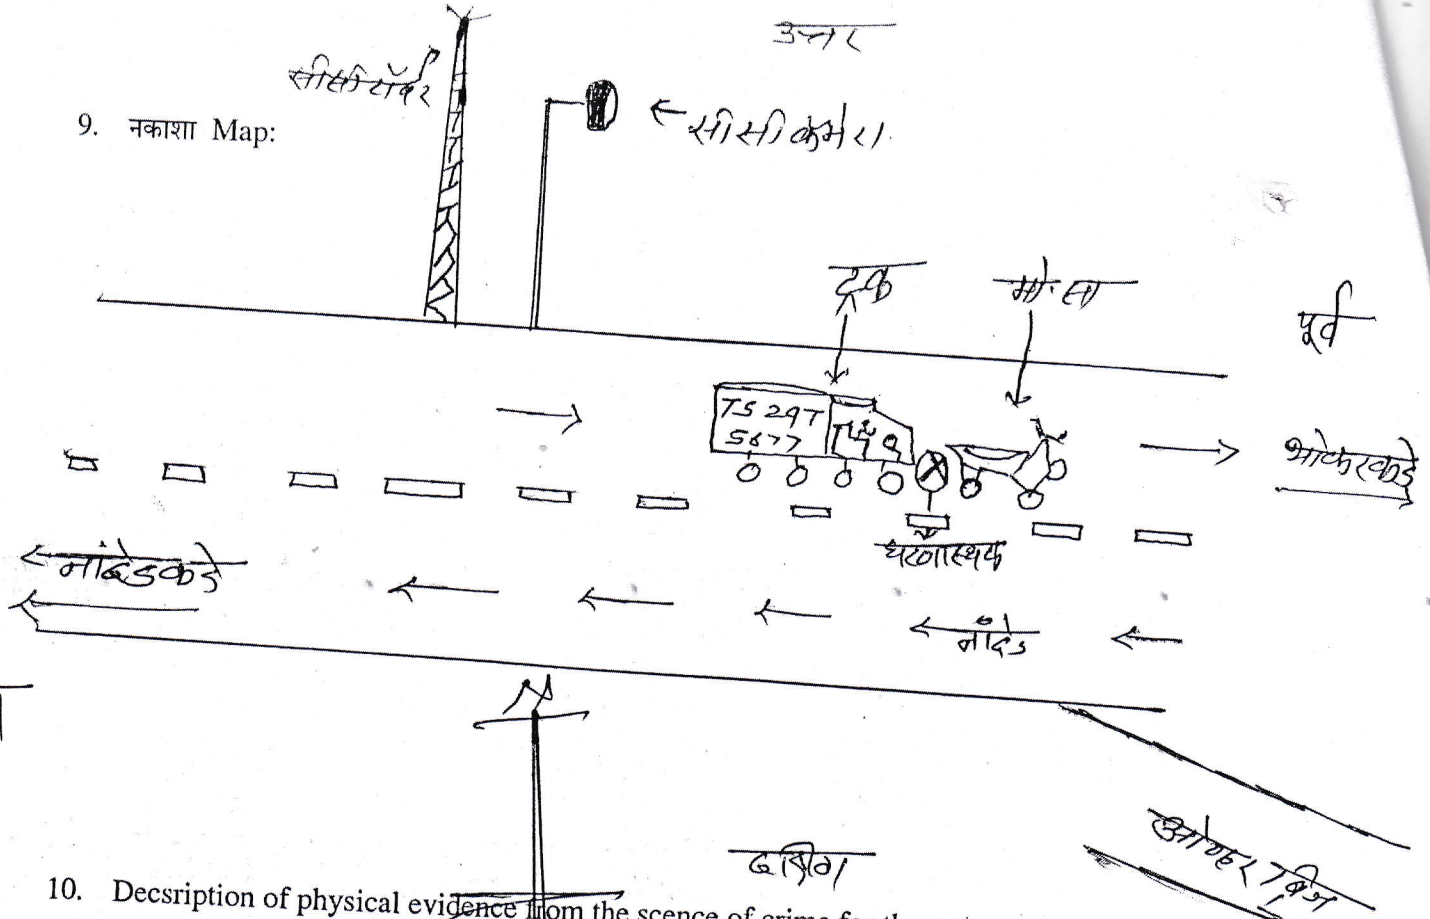 उत्तर
सीसी टॉवर
9. नकाशा Map:
← सी सी कॅमेरा.
ट्रक
मो.सा
पूर्व
TS 29T
5677
भोकरकडे
घटनास्थळ
नांदेडकडे
नांदेड
N
दक्षिण
10. Decsription of physical evidence from the scence of crime for the